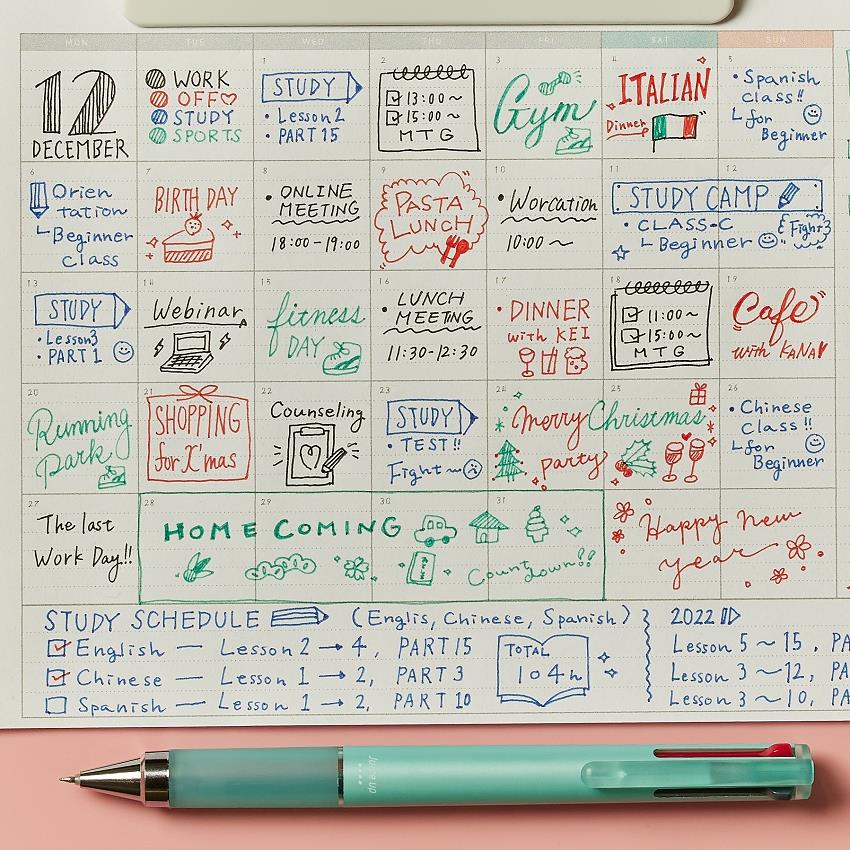 MON TUE WED THU FRI SAT SUN
12
DECEMBER
WORK
OFF♡
STUDY
SPORTS
1
STUDY
• Lesson 2
• PART 15
2
13:00~
15:00~
MTG
3
Gym
4
ITALIAN
Dinner
5
• Spanish
class!!
for
Beginner
6
Orien
tation
Beginner
class
7
BIRTH DAY
8
• ONLINE
MEETING
18:00-19:00
9
PASTA
LUNCH
10
• Worcation
10:00 ~
11 12
STUDY CAMP
• CLASS-C
Beginner
Fight
13
STUDY
• Lesson3
• PART 1
14
Webinar
15
fitness
DAY
16
• LUNCH
MEETING
11:30-12:30
17
• DINNER
with KEI
18
11:00~
15:00~
MTG
19
Cafe
with KANA
20
Running
Park
21
SHOPPING
for X'mas
22
Counseling
23
STUDY
• TEST!!
Fight~
24 25
Merry Christmas
party
26
• Chinese
class!!
for
Beginner
27
The last
Work Day!!
28 29 30 31
HOME COMING
Count down!!
Happy new
year
STUDY SCHEDULE (Englis, Chinese, Spanish)
English — Lesson 2 → 4, PART 15
Chinese — Lesson 1 → 2, PART 3
Spanish — Lesson 1 → 2, PART 10
TOTAL
104h
2022
Lesson 5 ~ 15, PA
Lesson 3 ~ 12, PA
Lesson 3 ~ 10, PA
Juice up